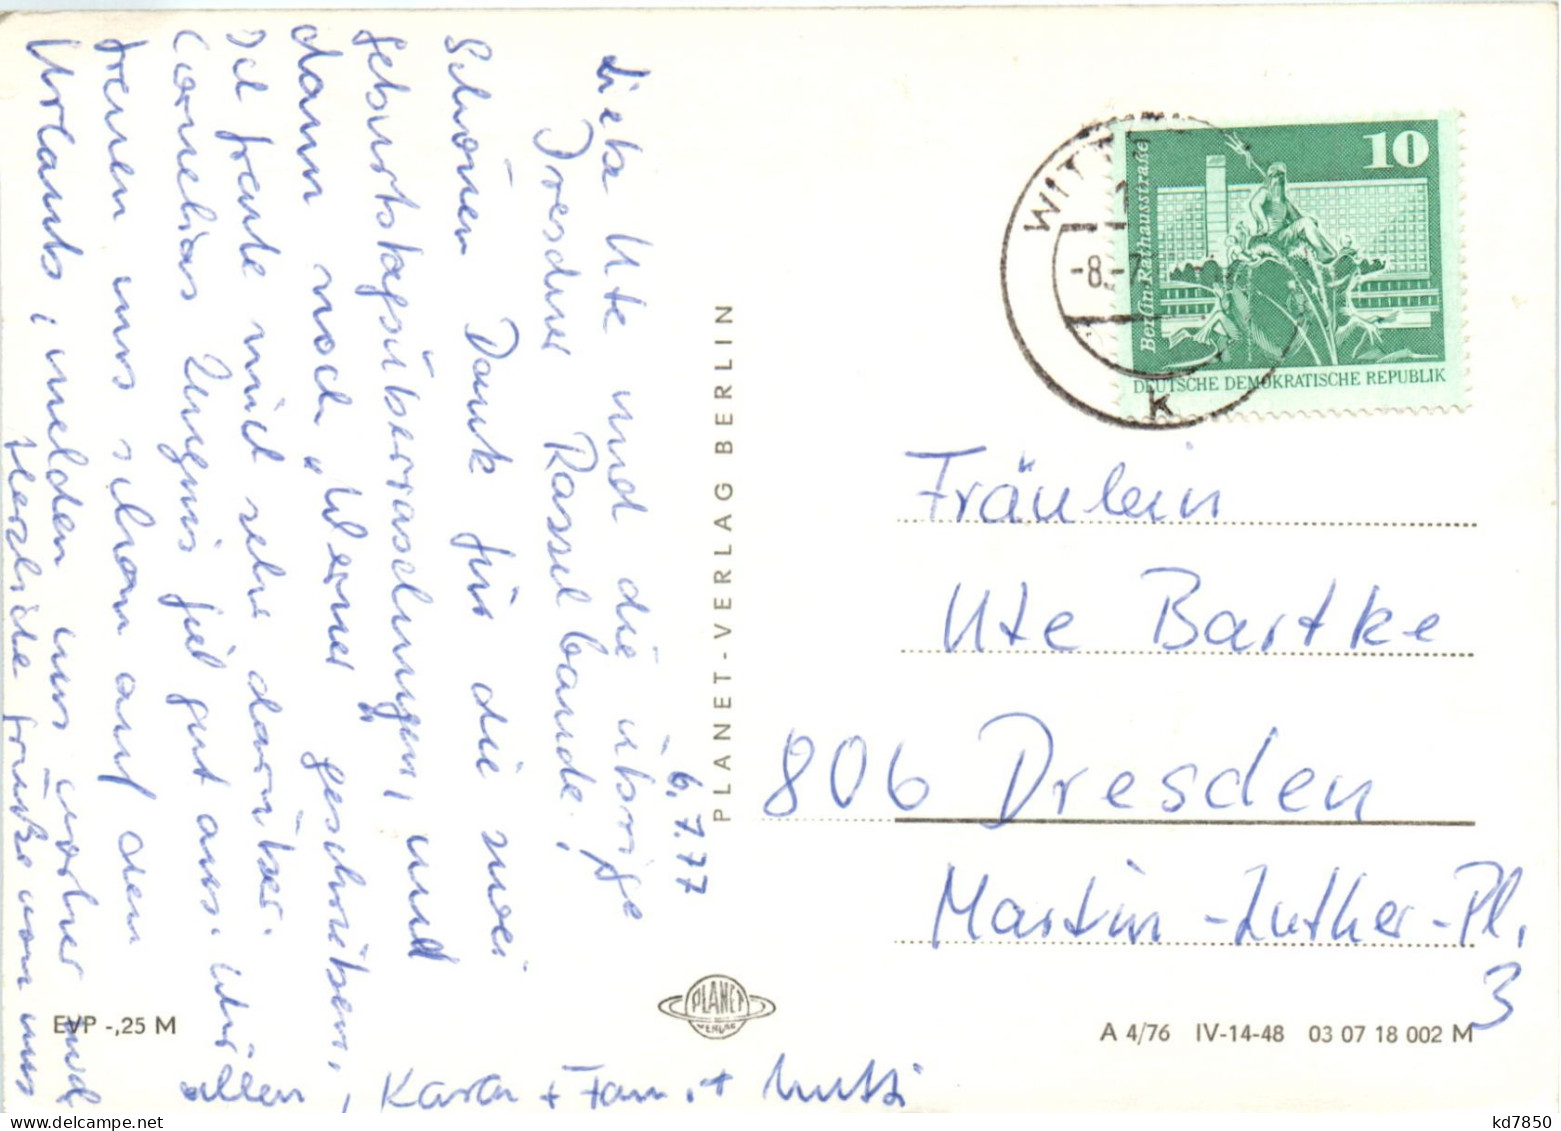 6.7.77
Liebe Ute und die übrige
Dresdner Rasselbande!
Schönen Dank für die zwei
Geburtstagsüberraschungen, und
dann noch "Werner" geschrieben,
Ich freute mich sehr darüber.
Cornelias Zeugnis fiel gut aus. Wir
freuen uns schon auf den
Urlaub, melden uns vorher
Herzliche Grüße von uns
allen, Karin + Fam. + Mutti
PLANET-VERLAG BERLIN
PLANET
VERLAG
EVP -,25 M
A 4/76 IV-14-48 03 07 18 002 M
WITT
-8.-7
k
10
Berlin Rathausstraße
DEUTSCHE DEMOKRATISCHE REPUBLIK
Fräulein
Ute Bartke
806 Dresden
Martin-Luther-Pl.
3
kd7850